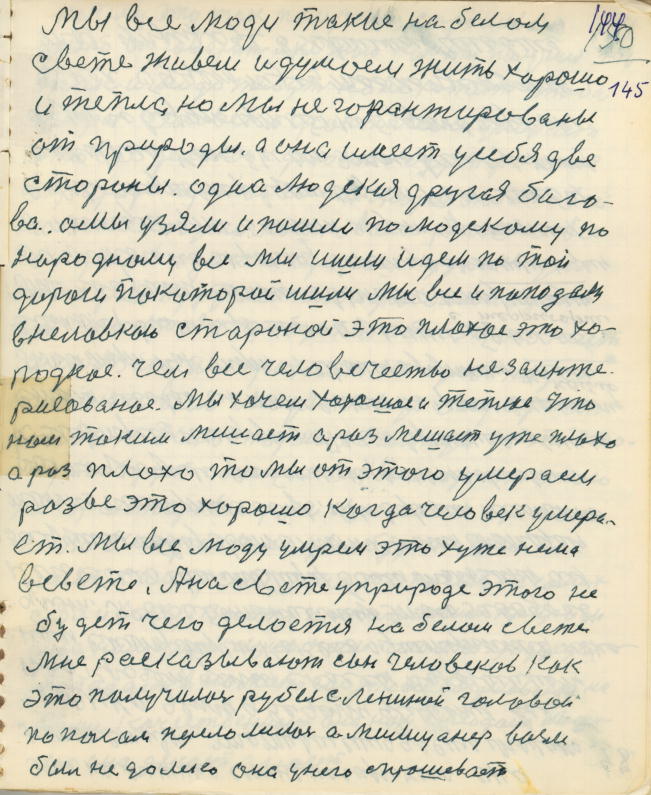 Мы все люди такие на белом
144 50
свете живем и думаем жить хорошо
145
и тепло, но мы не горантированы
от природы. а она имеет у себя две
стороны. одна людская другая баго-
ва.. а мы узяли и пошли по людскому по
народному все мы шли идем по той
дороги по каторой шли мы все и поподали
в неловкою стараной это плохое это хо-
лодное. чем все человечество не заинте-
рисованое. Мы хочем хорошое и теплое что
нам таким мешает а раз мешает уже плохо
а раз плохо то мы от этого умераем
разве это хорошо когда человек умера-
ет. Мы все люди умрем это хуже нема
в свете. А на свете у природе этого не
будет чего делоется на белом свете
мне расказывают сын человеков как
это получилось рубель с Лениной головой
по полам переломилось а милицанер возли
был не далеко она у него спрошевает